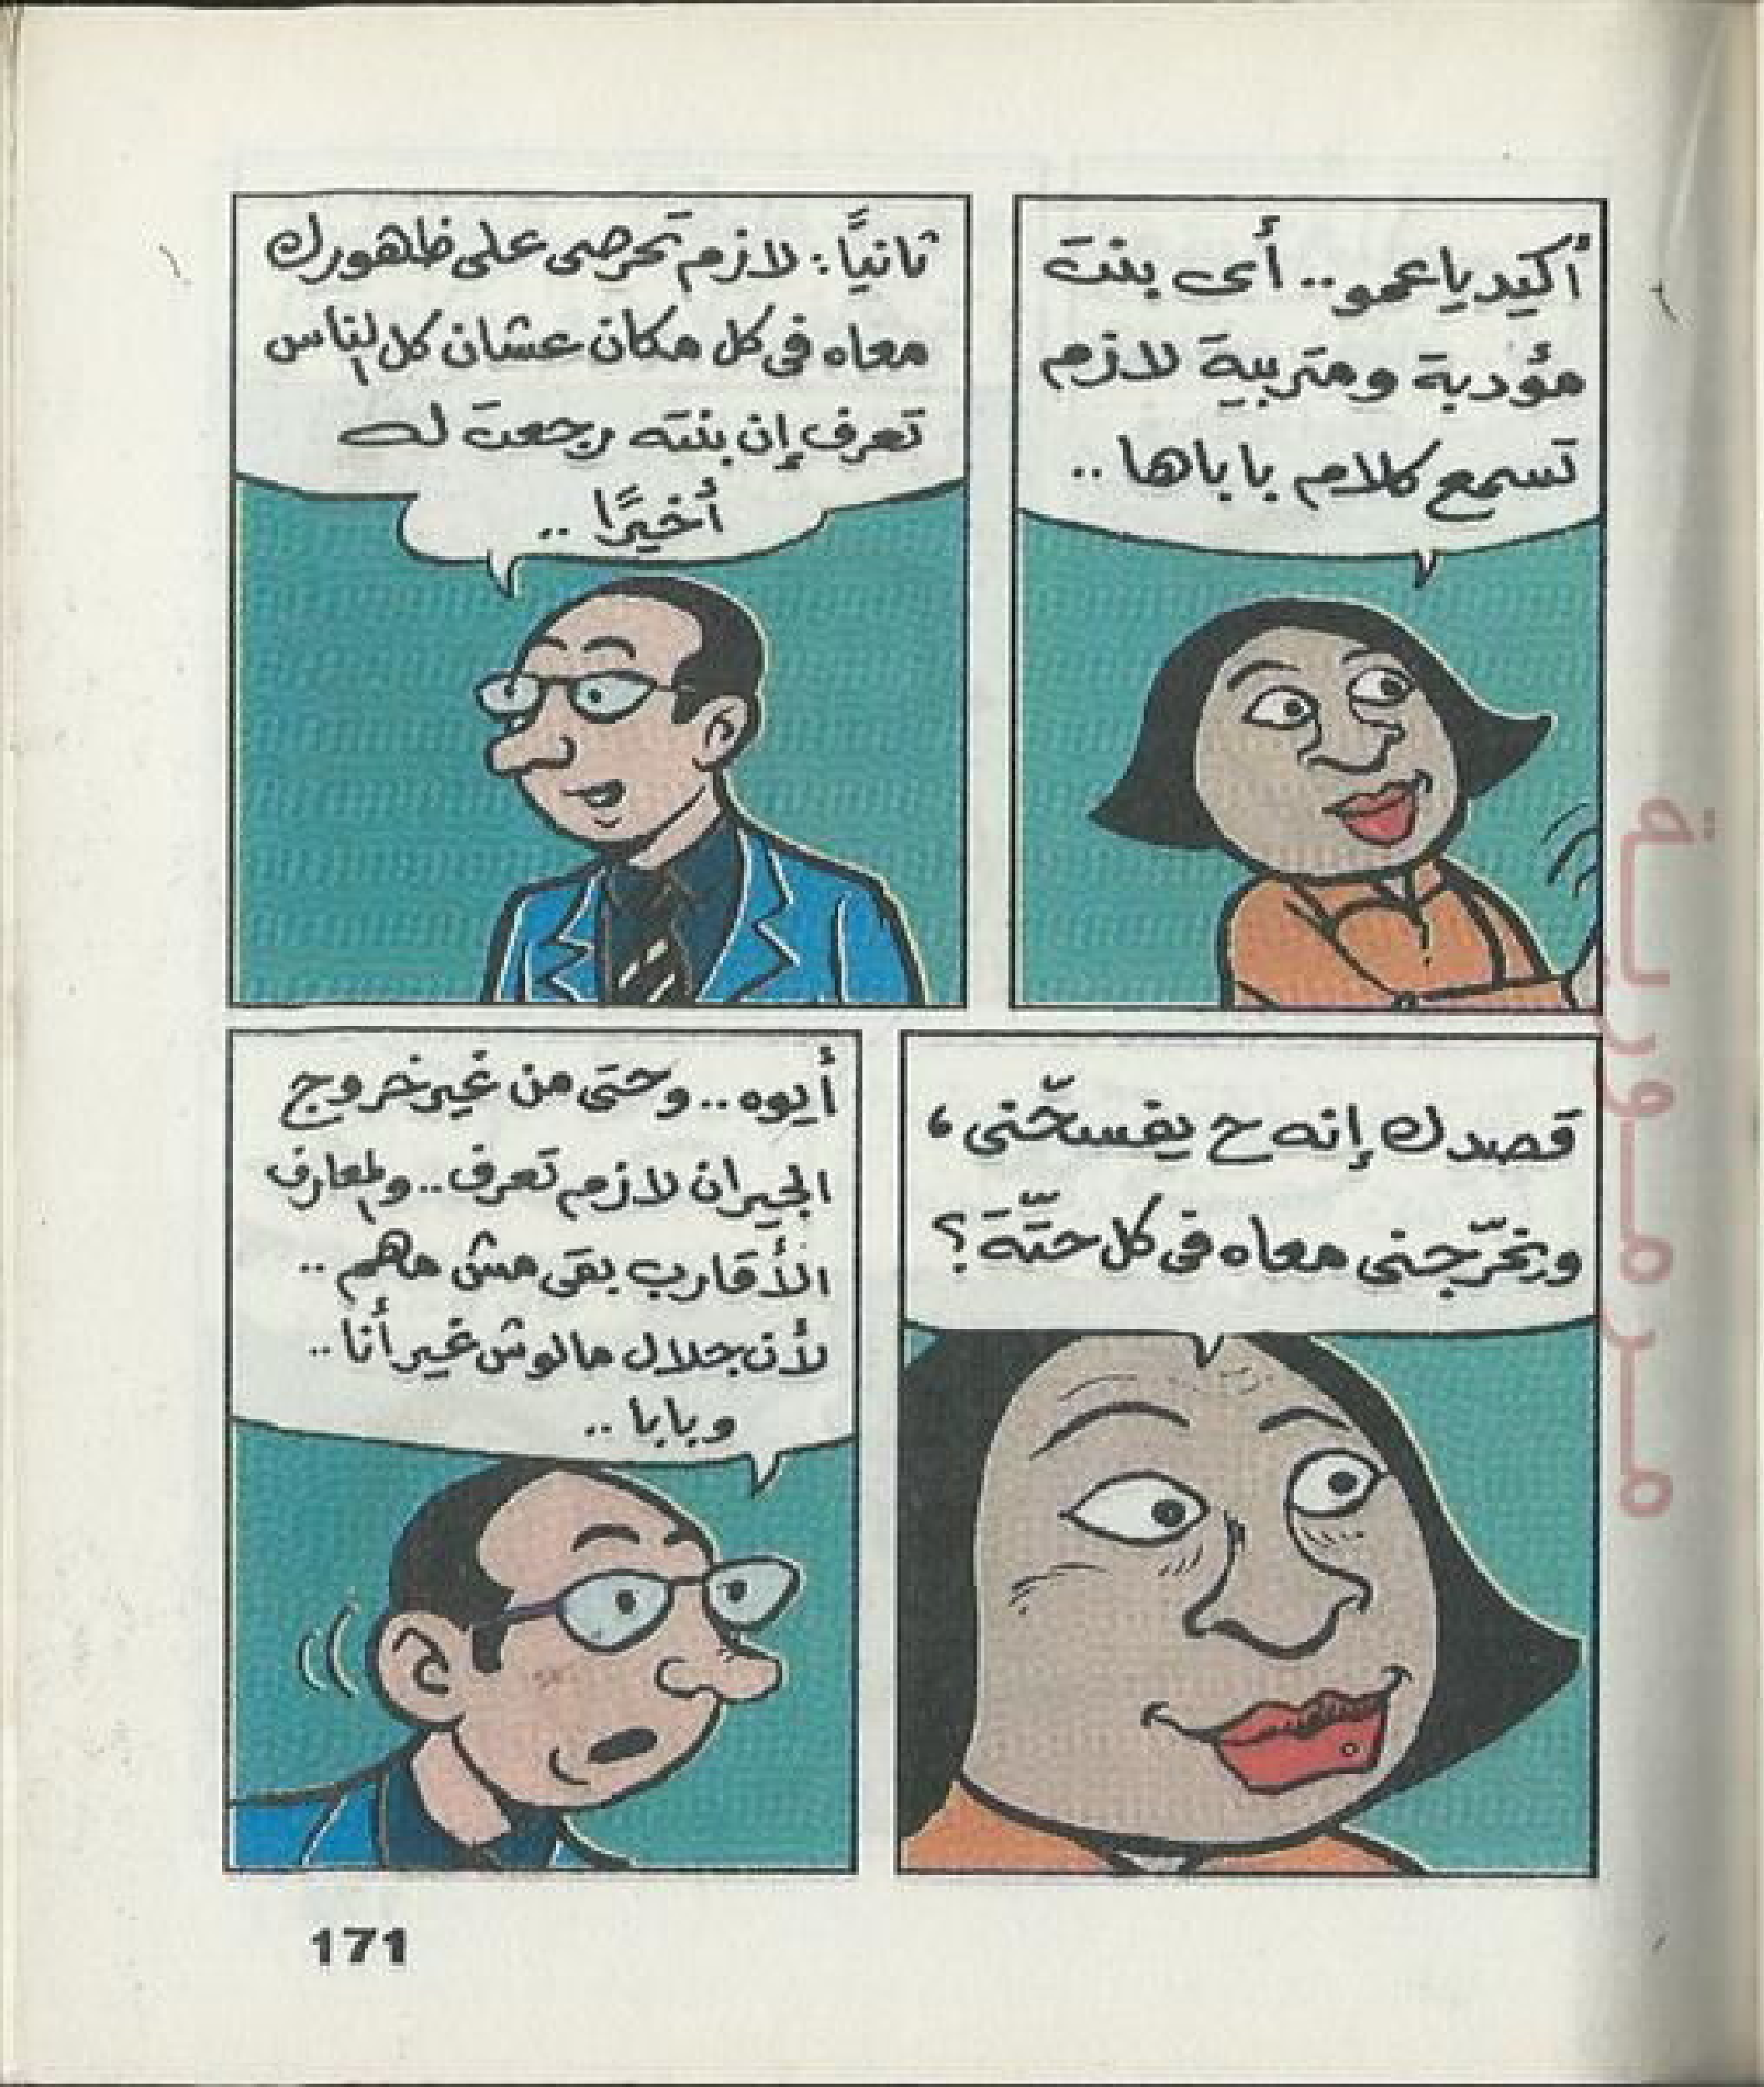 أكيد ياعمو.. أى بنت
مؤدبة ومتربية لازم
تسمع كلام باباها..
ثانيًا: لازم تحرصى على ظهورك
معاه فى كل مكان عشان كل الناس
تعرف إن بنته رجعت له
أخيرًا ..
قصدك إنه ح يفسحّنى،
ويخرّجنى معاه فى كل حتّة؟
أيوه.. وحتى من غير خروج
الجيران لازم تعرف.. والمعارف
الأقارب بقى مش مهم..
لأن جلال مالوش غير أنا..
وبابا ..
171
مرمورية